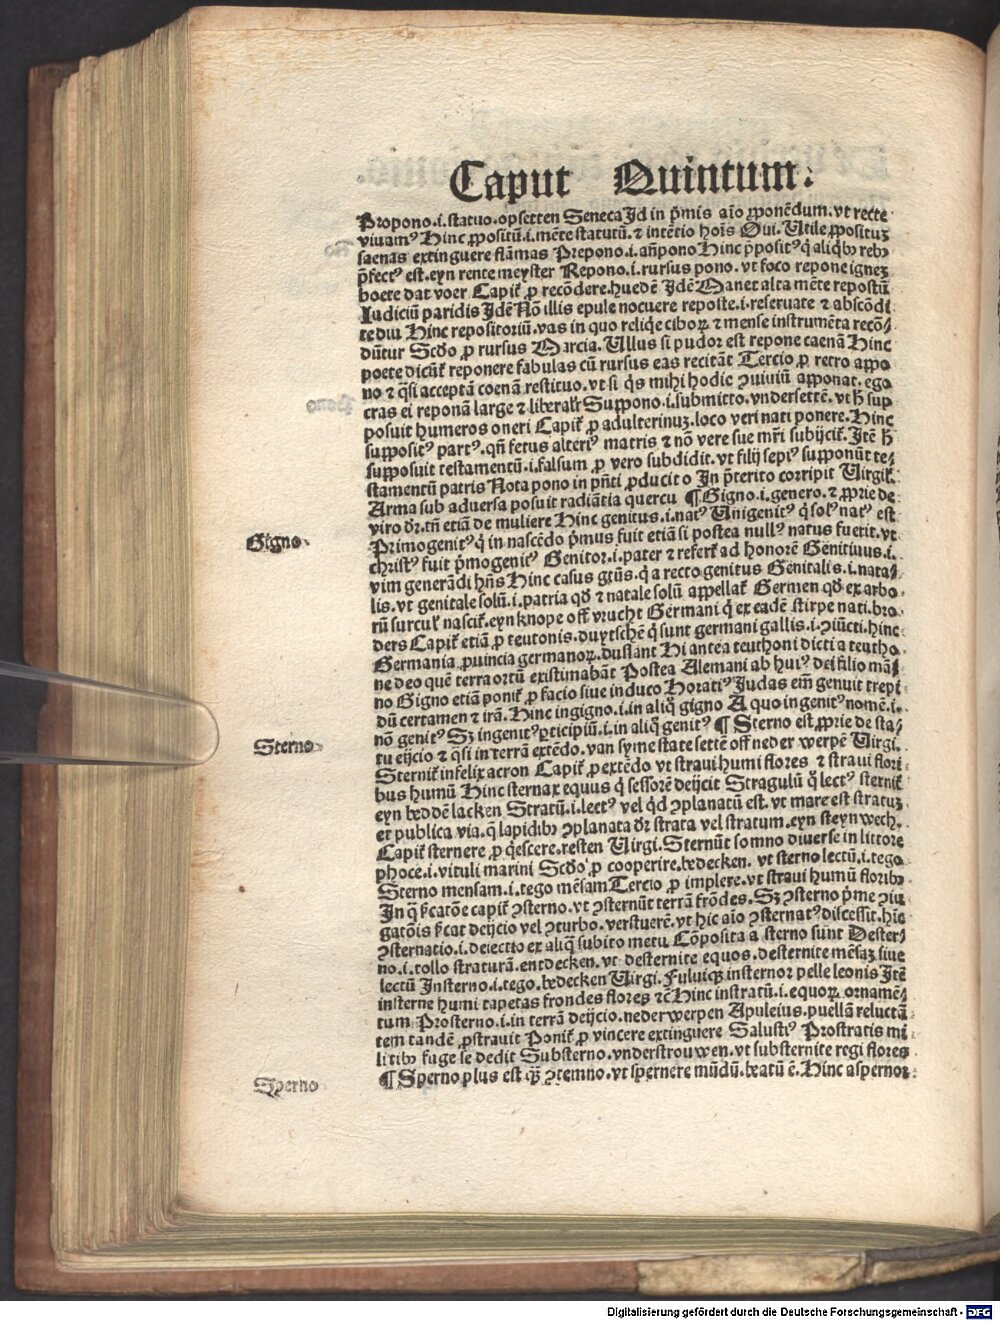 Caput Quintum.
Propono.i.statuo.opsetten Seneca Id in p̄mis aīo ꝓponēdum.vt recte
viuamꝰ Hinc ꝓpositū.i.mēte statutū. ⁊ intētio hoīs Oui. Utile ꝓposituꝫ
saeuas extinguere flāmas Prepono.i.añpono Hinc p̄positꝰ q̇ aliqbꝫ rebꝫ
p̄fectꝰ est.eyn rentemeyster Repono.i.rursus pono. vt foco repone igneꝫ
boete dat voer Capiť ꝓ recōdere.huedē Idē Manet alta mēte repostū
Iudiciū paridis Idē Nō illis epule nocuere reposte.i.reseruate ⁊ abscōdi
te diu Hinc repositoriū.vas in quo reliq̄e ciboꝝ ⁊ mense instrumēta recō⸗
dūtur Scďo ꝓ rursus Marcia. Ullus si pudor est repone caenā Hinc
poete dicūť reponere fabulas cū rursus eas recitāt Tercio ꝓ retro appo
no ⁊ q̄si acceptā coenā restituo.vt si q̇s mihi hodie ꝯuiuiū apponat. ego
cras ei reponā large ⁊ liberalr̄ Suppono.i.submitto.vndersettē. vt h̄ sup
posuit humeros oneri Capiť ꝓ adulterinuꝫ.loco veri nati ponere. Hinc
suppositꝰ partꝰ.qn̄ fetus alteriꝰ matris ⁊ nō vere sue mr̄i subijciť. Itē h̄
supposuit testamentū.i.falsum ꝓ vero subdidit. vt filij sepiꝰ supponūt te⸗
stamentū patris Nota pono in p̄nti ꝓducit o In p̄terito corripit Uirgiľ.
Arma sub aduersa posuit radiātia quercu ¶ Gigno.i.genero. ⁊ ꝓprie de
viro dr̄.tn̄ etiā de muliere Hinc genitus.i.natꝰ Unigenitꝰ q̇ solꝰ natꝰ est
Gigno.
Primogenitꝰ q̇ in nascēdo p̄mus fuit etiā si postea nullꝰ natus fuerit.vt
christꝰ fuit p̄mogenitꝰ Genitor.i.pater ⁊ referť ad honorē Genitiuus.i.
vim generādi hn̄s Hinc casus gtūs.q̇ a recto genitus Genitalis.i.nata⸗
lis.vt genitale solū.i.patria qď ⁊ natale solū appellať Germen qď ex arbo
rū surculꝰ nasciť.eyn knope off vrucht Germani q̇ ex eadē stirpe nati.bro
ders Capiť etiā ꝓ teutonis.duytschē q̇ sunt germani gallis.i.ꝯiūcti.hinc
Germania ꝓuincia germanoꝝ.dutslant Hi antea teuthoni dicti a teutho
ne deo quē terra ortū existimabāt Postea Alemani ab huiꝰ dei filio mā⸗
no Gigno etiā poniť ꝓ facio siue induco Horatiꝰ Iudas em̄ genuit trepi
dū certamen ⁊ irā. Hinc ingigno.i.in aliq̇ gigno A quo ingenitꝰ nomē.i.
nō genitꝰ Sꝫ ingenitꝰ ꝑticipiū.i.in aliq̇ genitꝰ ¶ Sterno est ꝓprie de sta⸗
Sterno.
tu eijcio ⁊ q̄si in terrā extēdo.van syme state settē off neder werpē Uirgi.
Sterniť infelix acron Capiť ꝓ extēdo vt straui humi flores ⁊ straui flori
bus humū Hinc sternax equus q̇ sessorē deijcit Stragulū q̇ lectꝰ sterniť
eyn beddē lacken Stratū.i.lectꝰ vel qď ꝯplanatū est. vt mare est stratuꝫ
et publica via.q̄ lapidibꝫ ꝯplanata dr̄ strata vel stratum.eyn steynwech.
Capiť sternere ꝓ q̇escere.resten Uirgi. Sternūt somno diuerse in littore
phoce.i.vituli marini Scďo ꝓ cooperire.bedecken. vt sterno lectū.i.tego
Sterno mensam.i.tego mēsam Tercio ꝓ implere.vt straui humū floribꝫ
In q̄ sc̄atōe capiť ꝯsterno.vt ꝯsternūt terrā frōdes. Sꝫ ꝯsterno p̄me ꝯiu
gatōis sc̄at deijcio vel ꝯturbo.verstuerē. vt hic aīo ꝯsternatꝰ discessit.hīc
ꝯsternatio.i.deiectio ex aliq̄ subito metu Cōposita a sterno sunt Dester⸗
no.i.tollo straturā.entdecken. vt desternite equos. desternite mēsaꝫ siue
lectū Insterno.i.tego.bedecken Uirgi. Fuluiqꝫ insternor pelle leonis Itē
insterne humi tapetas frondes flores ⁊c̄ Hinc instratū.i.equoꝝ ornamē⸗
tum Prosterno.i.in terrā deijcio.neder werpen Apuleius. puellā reluctā
tem tandē ꝓstrauit Poniť ꝓ vincere extinguere Salustiꝰ Prostratis mi
litibꝫ fuge se dedit Substerno.vnderstrouwen.vt substernite regi flores
¶ Sperno plus est q̄ꝫ ꝯtemno. vt spernere mūdū.beatū ē. Hinc aspernor
Sperno
Digitalisierung gefördert durch die Deutsche Forschungsgemeinschaft - DFG